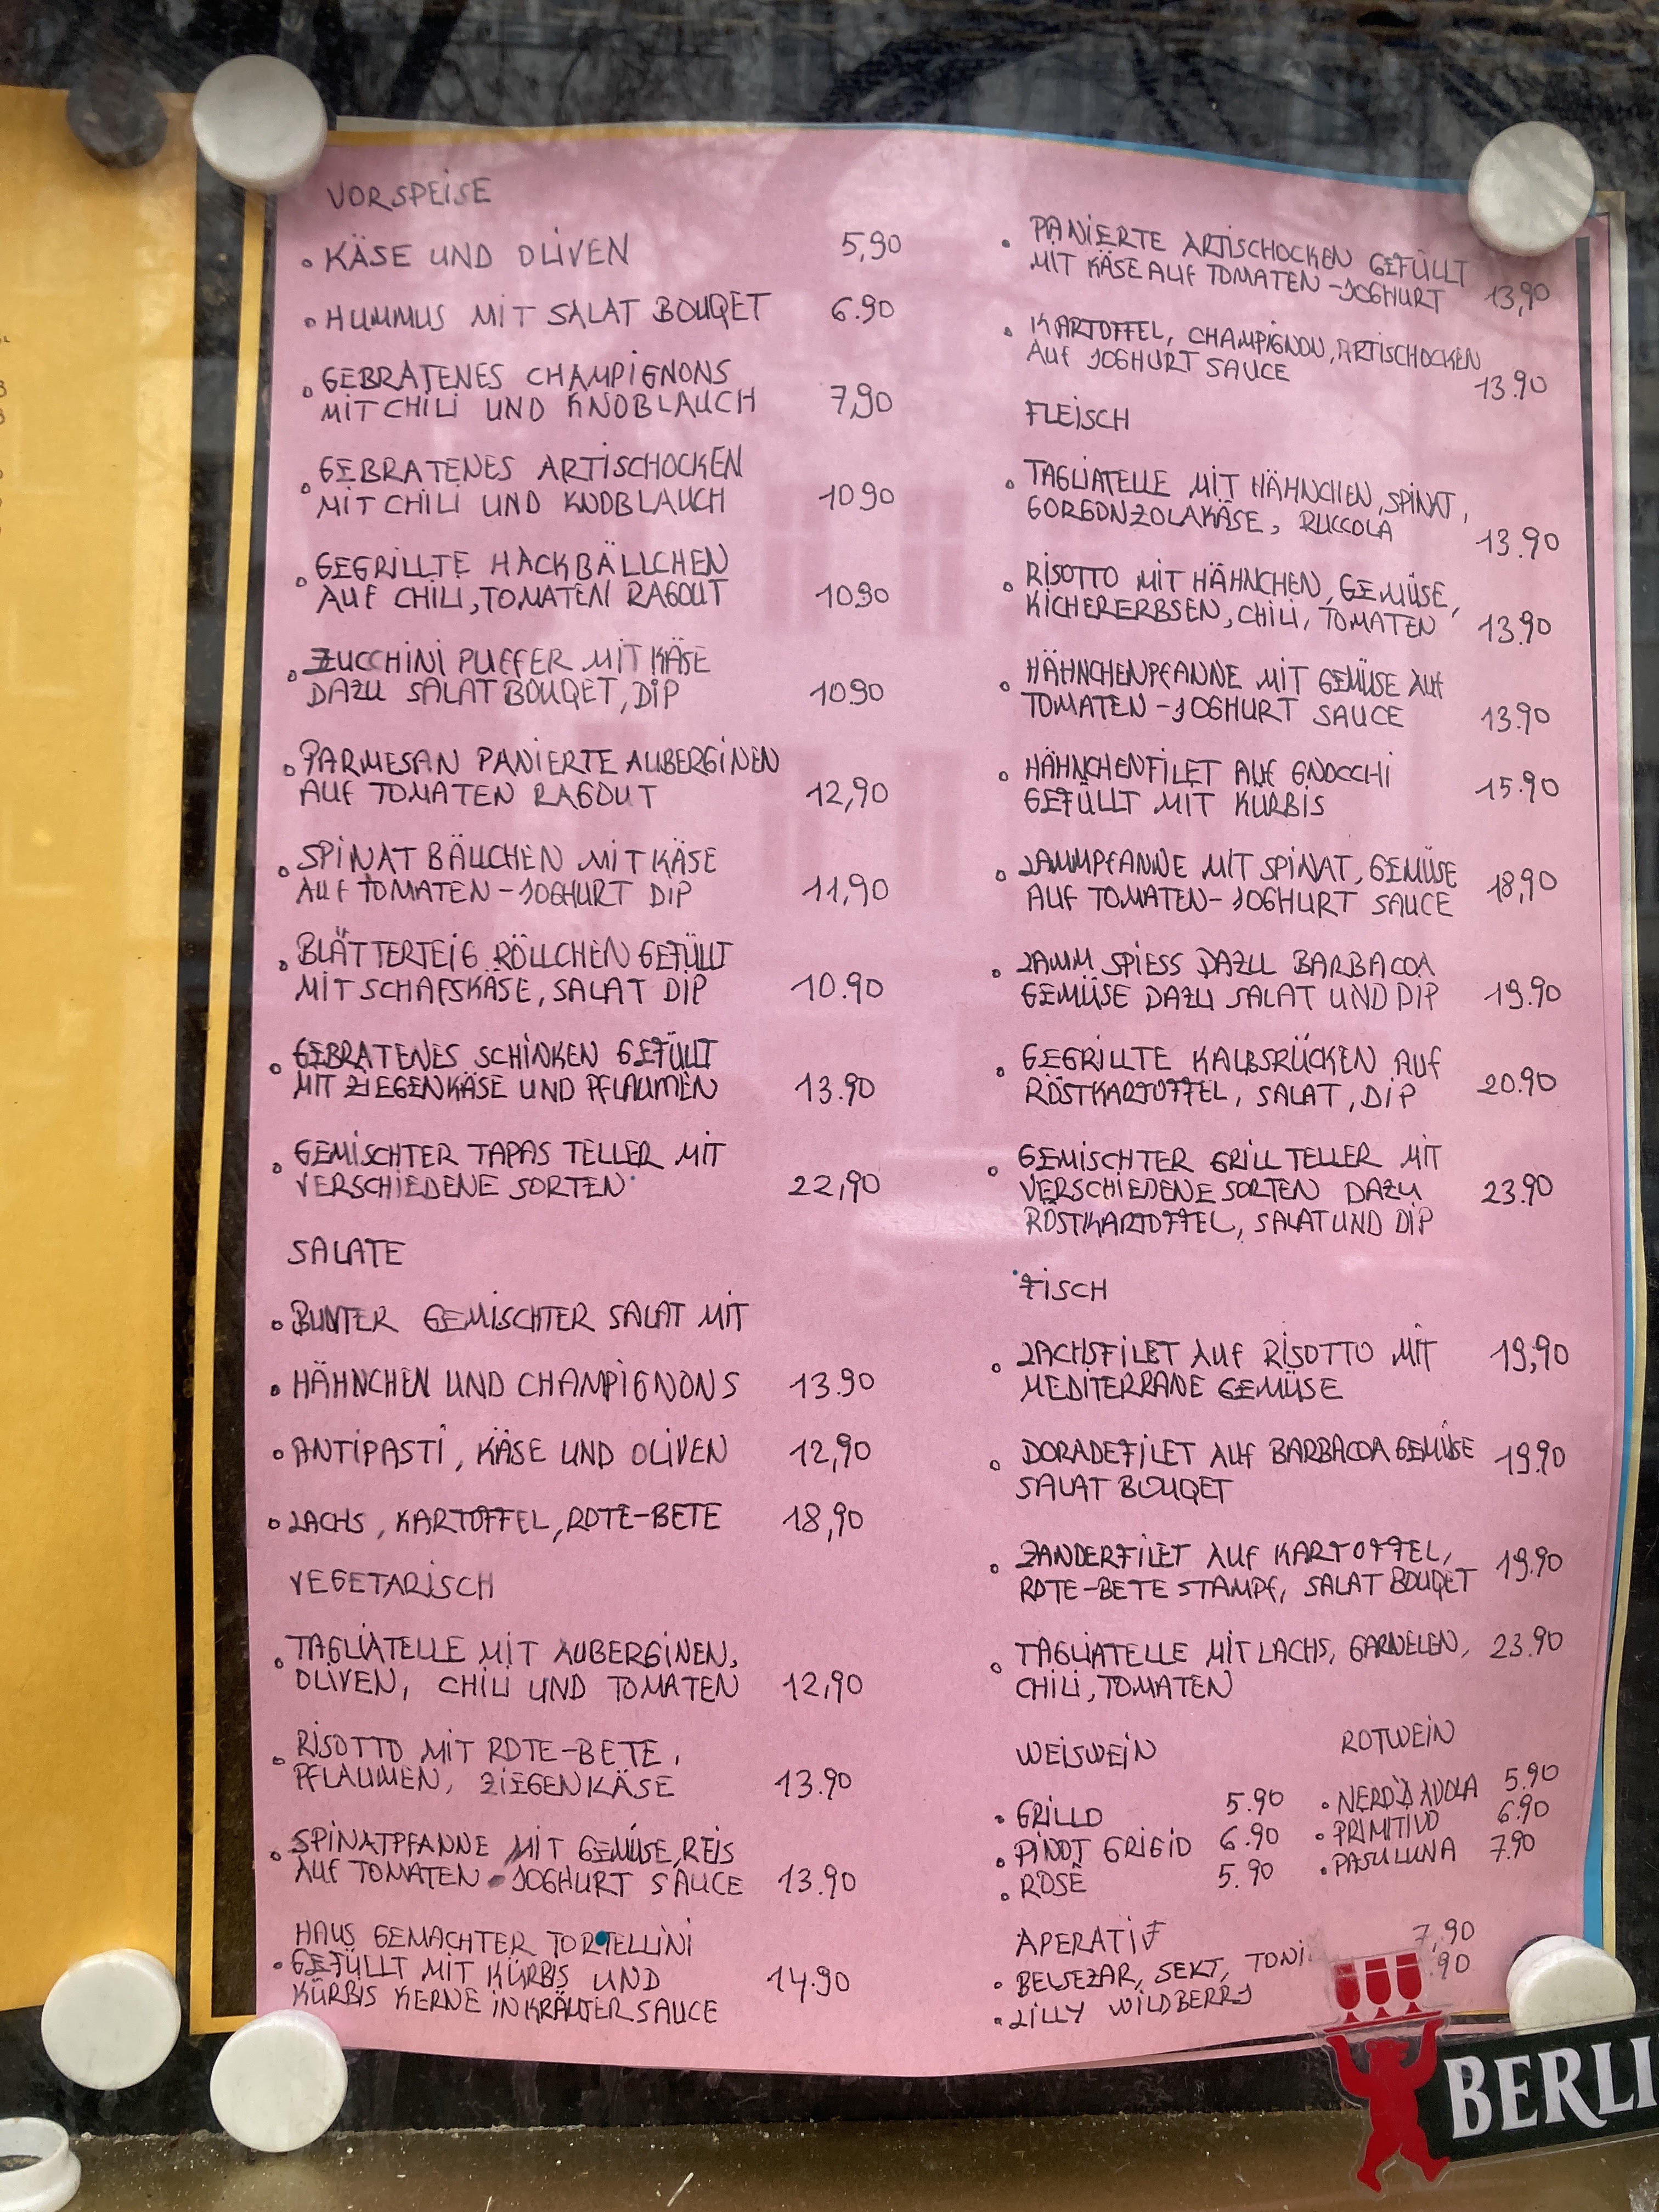 VORSPEISE
• KÄSE UND OLIVEN 5,90
• HUMMUS MIT SALAT BOUQET 6.90
• GEBRATENES CHAMPIGNONS
MIT CHILI UND KNOBLAUCH 7,90
• GEBRATENES ARTISCHOCKEN
MIT CHILI UND KNOBLAUCH 10 90
• GEGRILLTE HACKBÄLLCHEN
AUF CHILI, TOMATEN RAGOUT 10 90
• ZUCCHINI PUFFER MIT KÄSE
DAZU SALAT BOUQET, DIP 10 90
• PARMESAN PANIERTE AUBERGINEN
AUF TOMATEN RAGOUT 12,90
• SPINAT BÄLLCHEN MIT KÄSE
AUF TOMATEN-JOGHURT DIP 11,90
• BLÄTTERTEIG RÖLLCHEN GEFÜLLT
MIT SCHAFSKÄSE, SALAT DIP 10.90
• GEBRATENES SCHINKEN GEFÜLLT
MIT ZIEGENKÄSE UND PFLAUMEN 13.90
• GEMISCHTER TAPAS TELLER MIT
VERSCHIEDENE SORTEN 22,90
SALATE
• BUNTER GEMISCHTER SALAT MIT
• HÄHNCHEN UND CHAMPIGNONS 13.90
• ANTIPASTI, KÄSE UND OLIVEN 12,90
• LACHS, KARTOFFEL, ROTE-BETE 18,90
VEGETARISCH
• TAGLIATELLE MIT AUBERGINEN,
OLIVEN, CHILI UND TOMATEN 12,90
• RISOTTO MIT ROTE-BETE,
PFLAUMEN, ZIEGENKÄSE 13.90
• SPINATPFANNE MIT GEMÜSE, REIS
AUF TOMATEN-JOGHURT SAUCE 13.90
HAUS GEMACHTER TORTELLINI
• GEFÜLLT MIT KÜRBIS UND
KÜRBIS KERNE IN KRÄUTER SAUCE 14.90
• PANIERTE ARTISCHOCKEN GEFÜLLT
MIT KÄSE AUF TOMATEN-JOGHURT 13,90
• KARTOFFEL, CHAMPIGNON, ARTISCHOCKEN
AUF JOGHURT SAUCE 13.90
FLEISCH
• TAGLIATELLE MIT HÄHNCHEN, SPINAT,
GORGONZOLAKÄSE, RUCCOLA 13.90
• RISOTTO MIT HÄHNCHEN, GEMÜSE,
KICHERERBSEN, CHILI, TOMATEN 13.90
• HÄHNCHENPFANNE MIT GEMÜSE AUF
TOMATEN-JOGHURT SAUCE 13.90
• HÄHNCHENFILET AUF GNOCCHI
GEFÜLLT MIT KÜRBIS 15.90
• LAMMPFANNE MIT SPINAT, GEMÜSE
AUF TOMATEN-JOGHURT SAUCE 18,90
• LAMM SPIESS DAZU BARBACOA
GEMÜSE DAZU SALAT UND DIP 19.90
• GEGRILLTE KALBSRÜCKEN AUF
RÖSTKARTOFFEL, SALAT, DIP 20.90
• GEMISCHTER GRILL TELLER MIT
VERSCHIEDENE SORTEN DAZU 23.90
RÖSTKARTOFFEL, SALAT UND DIP
FISCH
• LACHSFILET AUF RISOTTO MIT 19,90
MEDITERRANE GEMÜSE
• DORADEFILET AUF BARBACOA GEMÜSE 19.90
SALAT BOUQET
• ZANDERFILET AUF KARTOFFEL, 19.90
ROTE-BETE STAMPF, SALAT BOUQET
• TAGLIATELLE MIT LACHS, GARNELEN, 23.90
CHILI, TOMATEN
WEISWEIN
• GRILLO 5.90
• PINOT GRIGIO 6.90
• ROSÈ 5.90
ROTWEIN
• NERO'D AVOLA 5.90
• PRIMITIVO 6.90
• PASULUNA 7.90
APERATIF 7,90
• BELSEZAR, SEKT, TONI .90
• LILLY WILDBERRY
BERLI